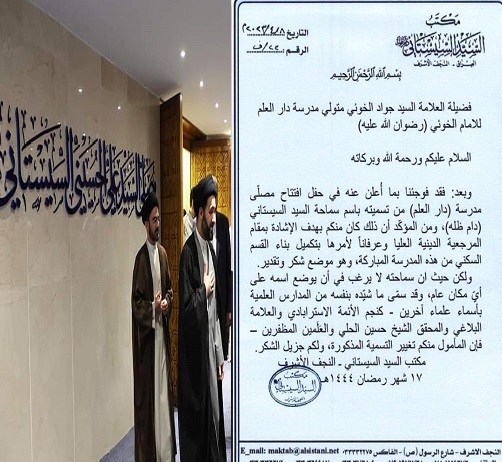 مصلى السيد علي الحسيني السيستاني
مكتب
السيد السيستاني
العراق - النجف الأشرف
التاريخ ٢٠٢٣/٤/٨
الرقم:
بسم الله الرحمن الرحيم
فضيلة العلامة السيد جواد الخوئي متولي مدرسة دار العلم
للامام الخوئي (رضوان الله عليه)
السلام عليكم ورحمة الله وبركاته
وبعد: فقد فوجئنا بما أُعلن عنه في حفل افتتاح مصلّى
مدرسة (دار العلم) من تسميته باسم سماحة السيد السيستاني
(دام ظله)، ومن المؤكّد أن ذلك كان منكم بهدف الإشادة بمقام
المرجعية الدينية العليا وعرفاناً لأمرها بتكميل بناء القسم
السكني من هذه المدرسة المباركة، وهو موضع شكر وتقدير.
ولكن حيث ان سماحته لا يرغب في أن يوضع اسمه على
أيّ مكان عام، وقد سمّى ما شيّده بنفسه من المدارس العلمية
بأسماء علماء آخرين - كنجم الأئمة الاسترابادي والعلامة
البلاغي والمحقق الشيخ حسين الحلي والعَلَمين المظفرين –
فإن المأمول منكم تغيير التسمية المذكورة، ولكم جزيل الشكر.
مكتب السيد السيستاني - النجف الأشرف
١٧ شهر رمضان ١٤٤٤هـ
مكتب
السيد السيستاني
النجف الاشرف - شارع الرسول (ص) - الفاكس ٠٣٣٣٣٢٢٧٥ E_mail: maktab@alsistani.net